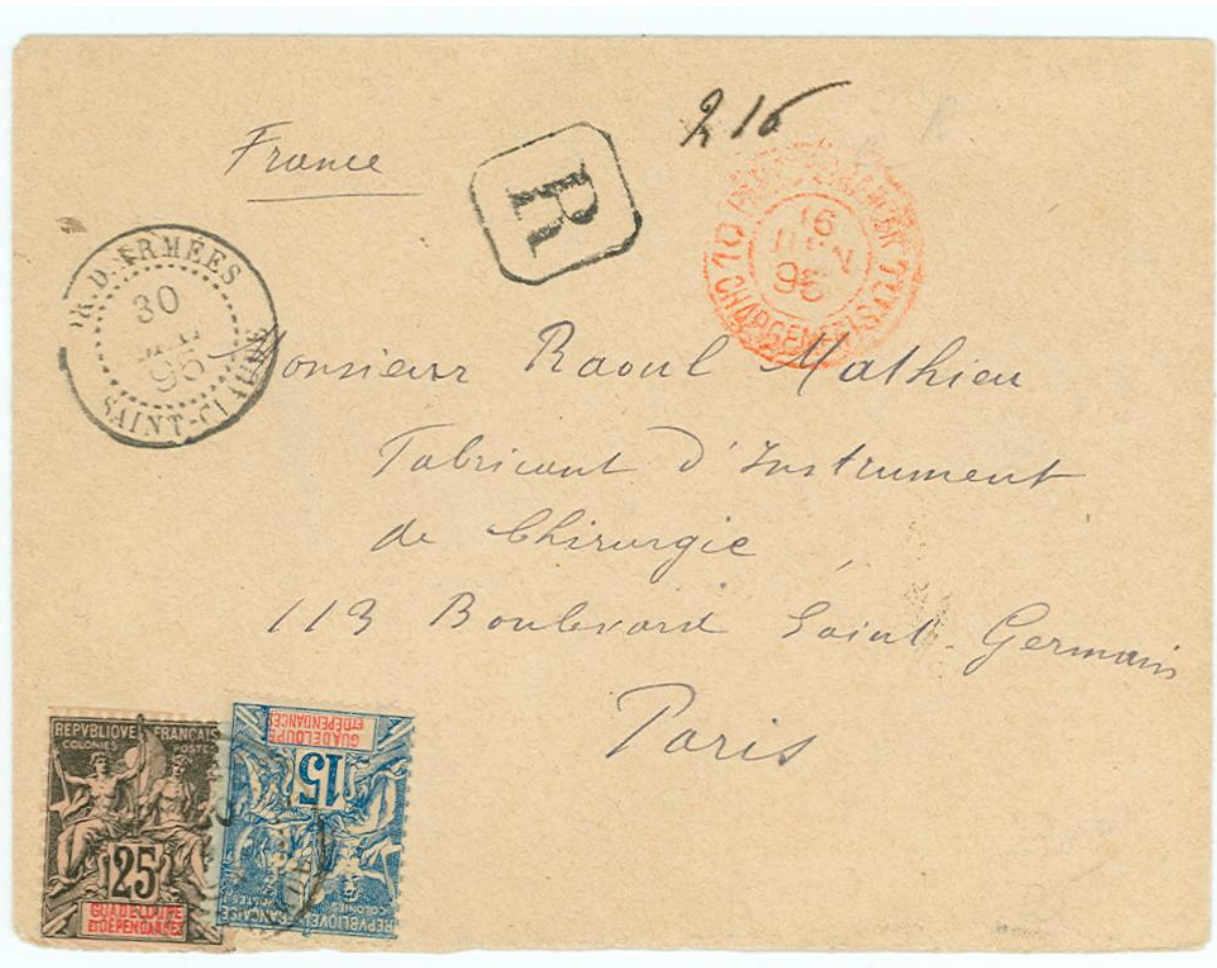 216
France
R
COR. D. ARMÉES
30
95
SAINT-CLAUDE
16
JUIN
95
CHARGEMENTS
10
Monsieur Raoul Mathieu
Fabricant d'Instrument
de Chirurgie
113 Boulevard Saint-Germain
Paris
REPVBLIQVE FRANÇAISE
COLONIES POSTES
25
GUADELOUPE
ET DÉPENDANCES
GUADELOUPE
ET DÉPENDANCES
15
COLONIES POSTES
REPVBLIQVE FRANÇAISE